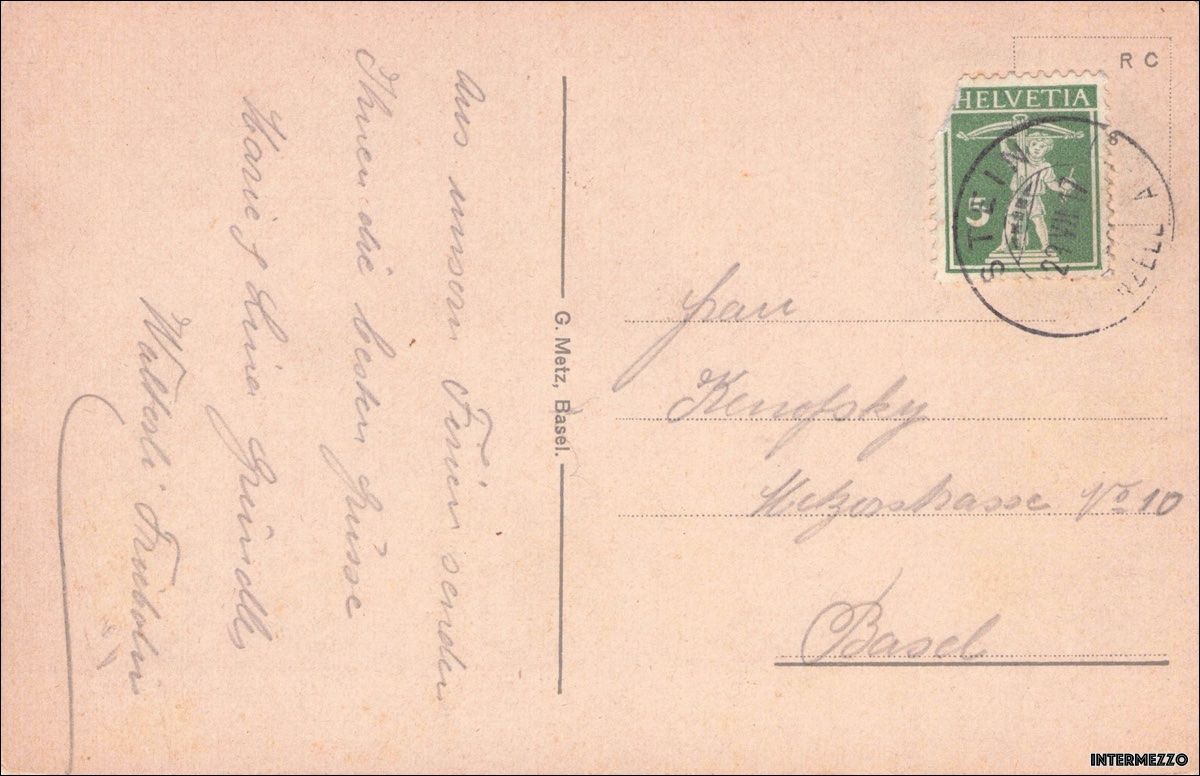 Aus unsern Ferien senden
Ihnen die besten Grüsse
Marie & Lina
Walter
G. Metz, Basel.
R C
HELVETIA
5
STEIN
VII 17
ZELL A
Frau
Metzerstrasse No 10
Basel
INTERMEZZO